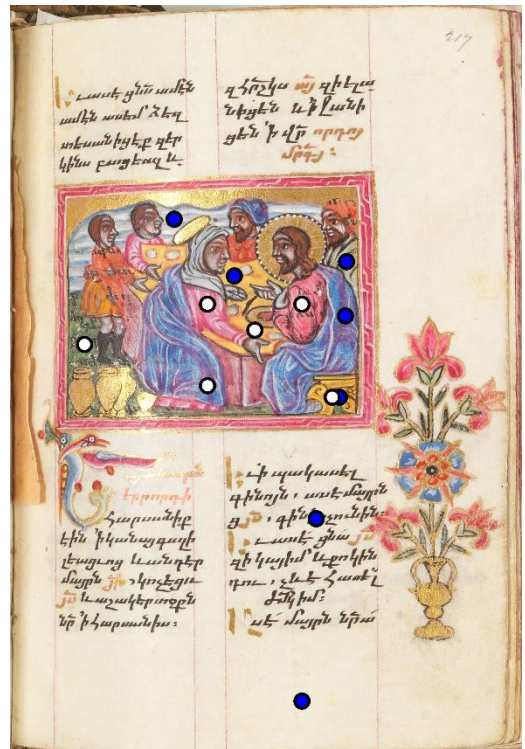 217
Եւ ասէ ցնա ամէն
ամէն ասեմ ձեզ
տեսանիցէք զեր
կինս բացեալ և
զհրշկս այ զի ելա
նիցեն և իջանի
ցեն ՛ի վր որդոյ
մրդոյ ։
երրորդի
Հարսանիք
էին ՛ի կանա գալի
լեացւոց և անդ էր
մայրն յի, կոչեցաւ
յս և աշակերտքըն
նր ՛ի հարսանիս։
Եւ ՛ի պակասել
գինոյն, ասէ մայրն
ցյս, գինի
Եւ ասէ ցնա յս
զի կայ իմ և քո կին
դու, չևէ հասեալ
ժմնկ իմ։
Ասէ մայրն նրա